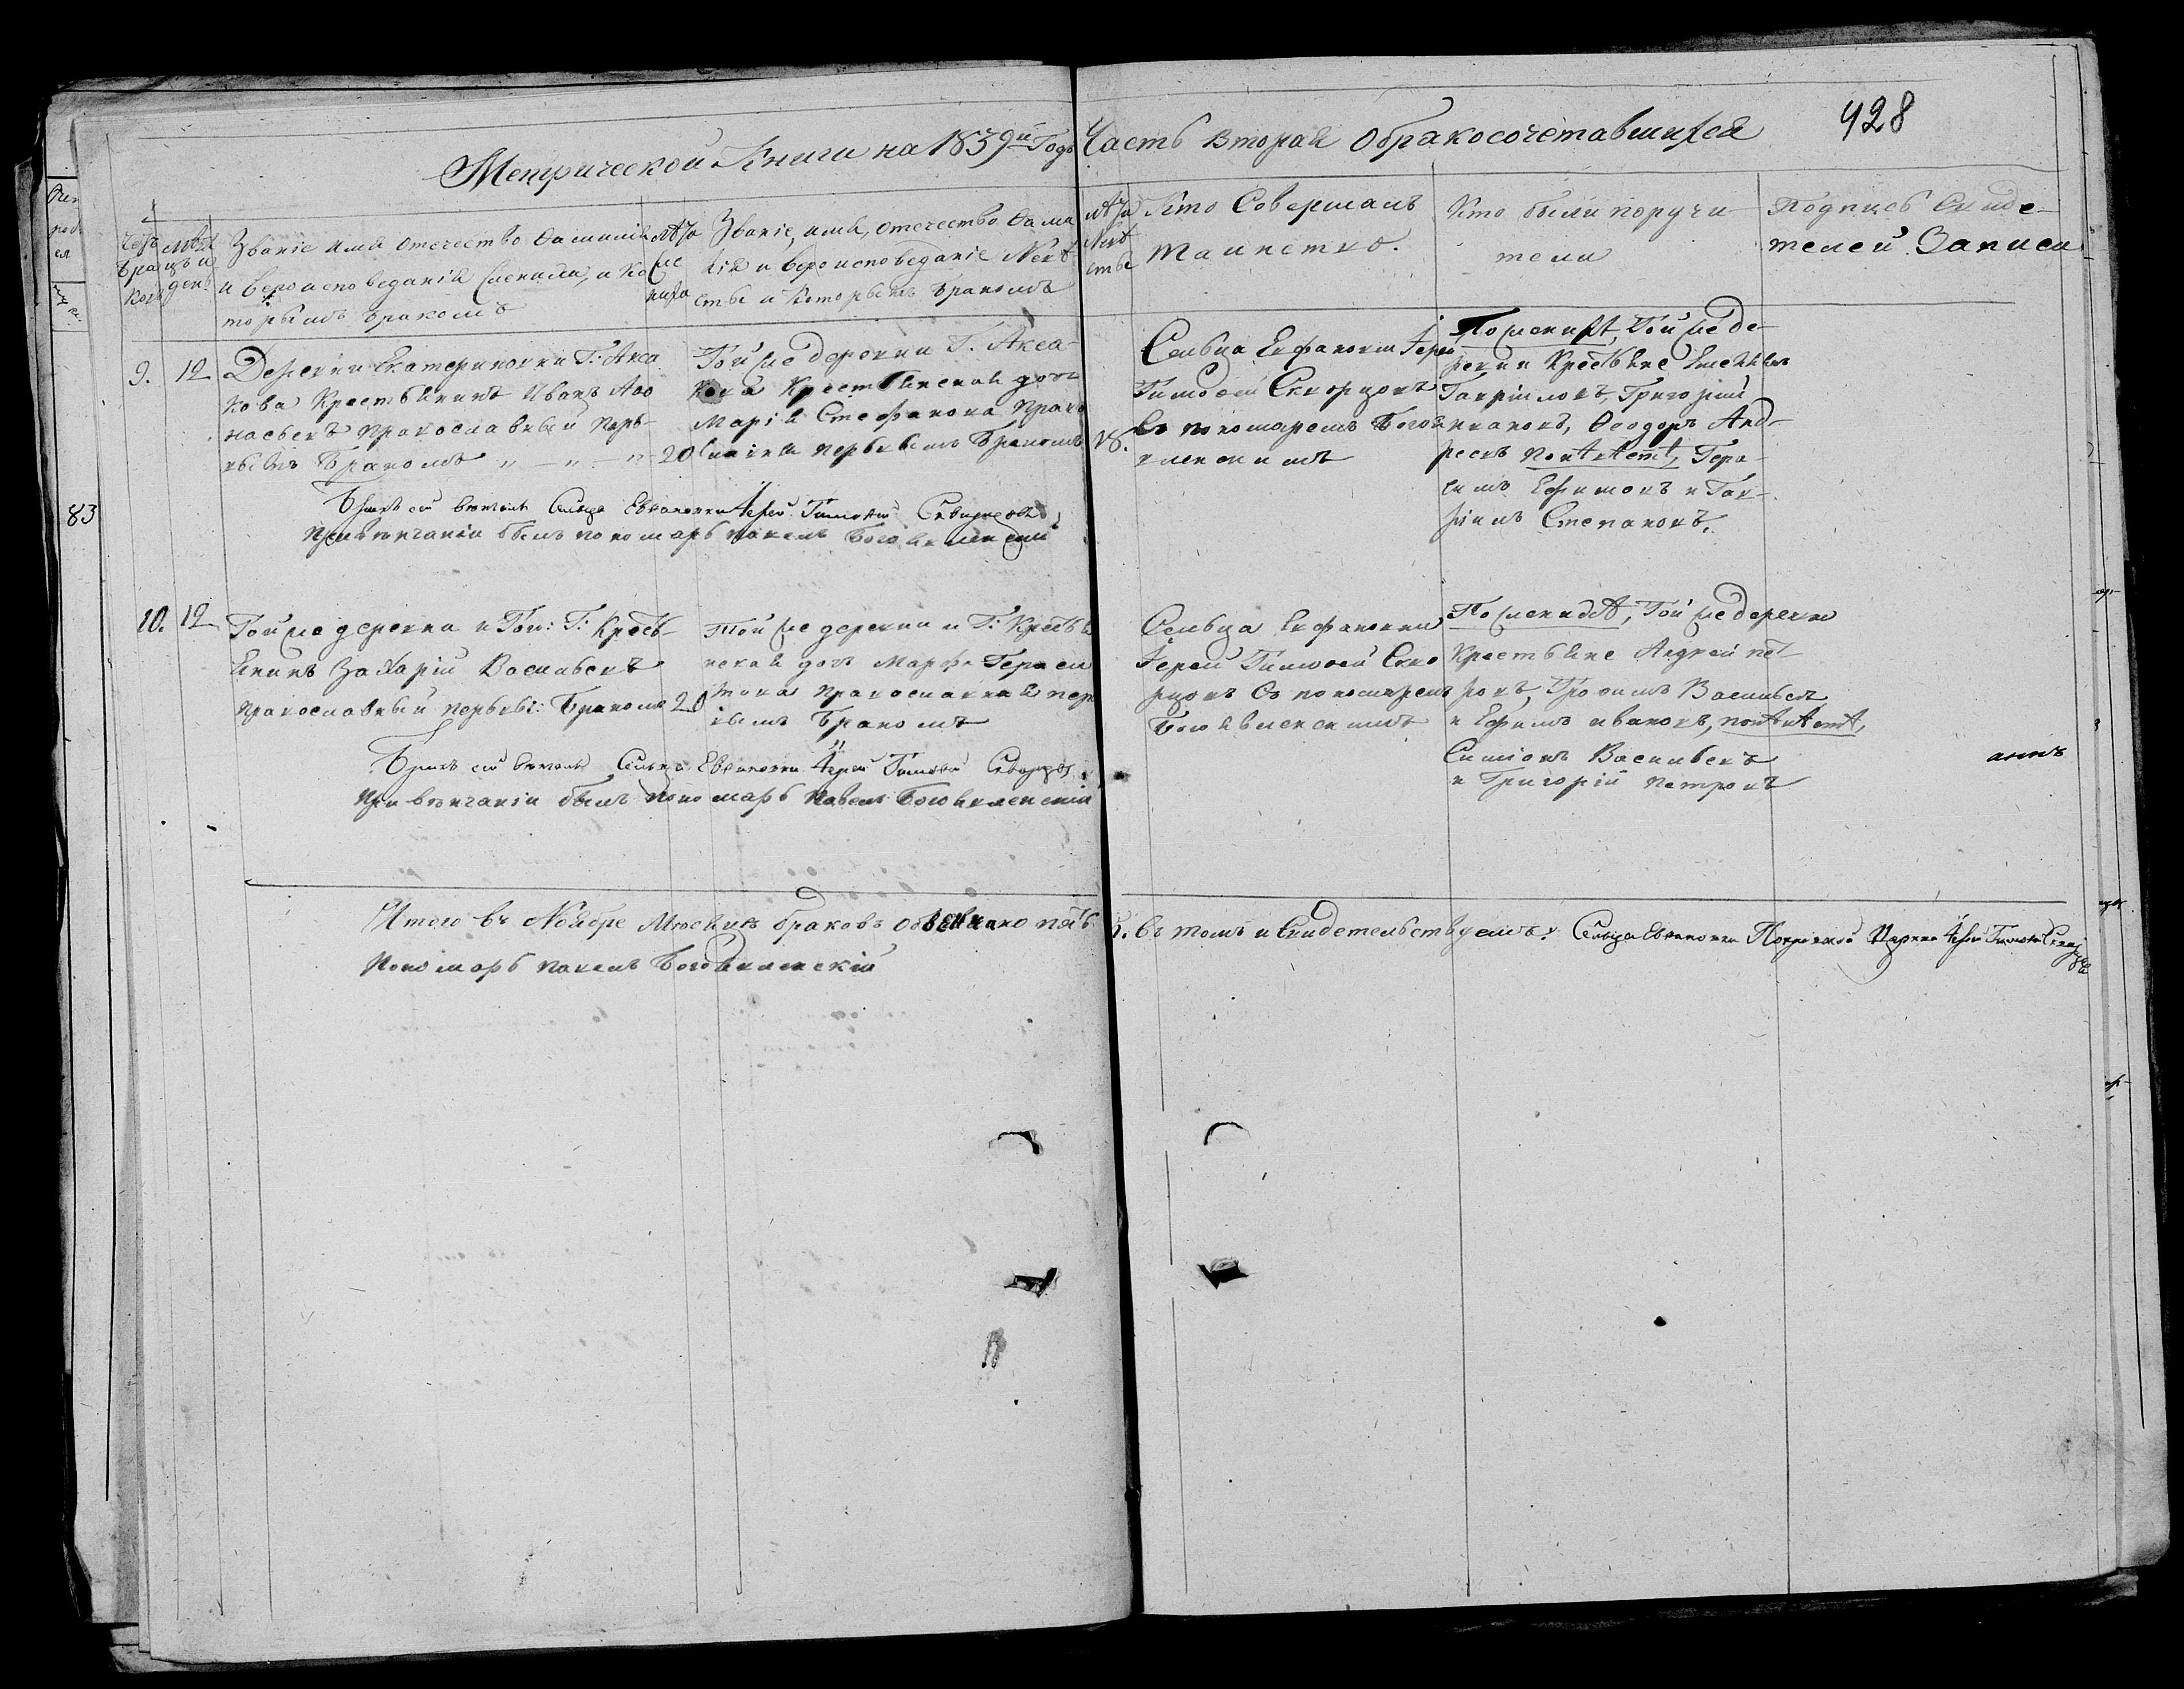 428
Метрической Книги на 1839й Годъ Часть вторая О бракосочетавшихся
Звание имя отечество Фамилія
и Вероисповеданія Жениха, и Ко
торымъ бракомъ
лѣта
же
ниха
Званіе, имя, отечество Фами
лія и вероисповеданіе Невѣ
сты и которымъ бракомъ
лѣта
Невѣ
сты
Кто Совершалъ
Таинство.
Кто были поручи
тели
Подпись Свиде
телей Записи
9. 12
Деревни Екатериновки Г: Акса
кова Крестьянинъ Иванъ Аѳо
насьевъ православный пер
вымъ бракомъ „ — „ — „ 20
Той же деревни Г. Акса
кова Крестьянская дочь
Марія Стефанова Право
славная первымъ бракомъ
18.
Сельца Евфановки Іерей
Тимоѳей Скворцовъ
съ пономаремъ Богоя
вленскимъ
По женихѣ, Той же де
ревни Крестьяне
Гавріиловъ, Григорій
Ивановъ, Ѳеодоръ Анд
реевъ по невѣстѣ, Гера
симъ Ефимовъ и Гав
ріилъ Степановъ.
Бракъ сей венчалъ Сельца Евфановки Іерей Тимоѳей Скворцовъ
при венчаніи былъ пономарь Павелъ Богоявленскій
83
10. 12
Той же деревни и Гос: Г: Кресть
янинъ Захарій Васильевъ
православный первы: бракомъ 20
Той же деревни и Г: Крестья
нская дочь Марфа Гераси
мова православная пер
вымъ бракомъ
Сельца Евфановки
Іерей Тимоѳей Скво
рцовъ Съ пономаремъ
Богоявленскимъ
По женихѣ, Той же деревни
Крестьяне Андрей Пет
ровъ, Трофимъ Васильевъ
и Ефимъ Ивановъ, по невѣстѣ,
Симіонъ Васильевъ
и Григорій Петровъ
Бракъ сей венчалъ Сельца Евфановки Іерей Тимоѳей Скворцовъ
при венчаніи былъ пономарь Павелъ Богоявленскій
Итого въ Ноябре Месяце браковъ обвенчано пять
5. въ томъ и Свидетельствуемъ: Сельца Евфановки Покровской Церкви Іерей Тимоѳей Скворцовъ
Пономарь Павелъ Богоявленскій